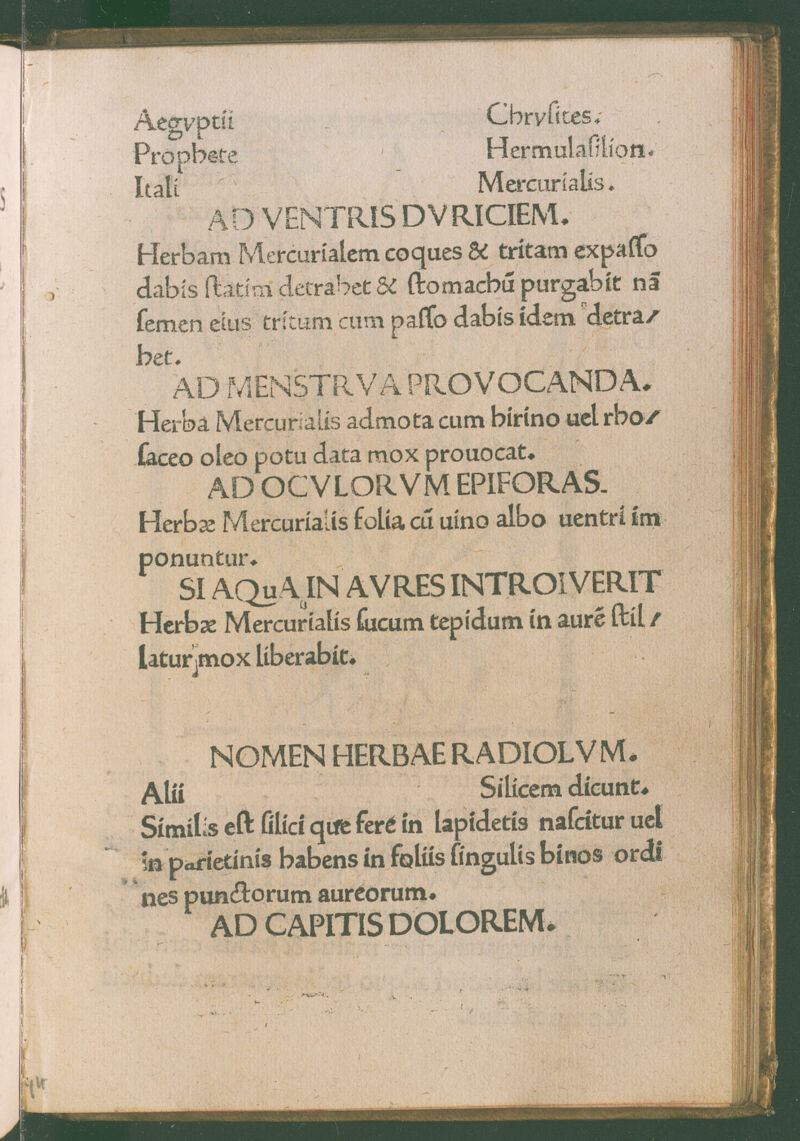 Aegyptii Chryſites.
Prophete Hermulaſilion.
Itali Mercurialis.
AD VENTRIS DVRICIEM.
Herbam Mercurialem coques & tritam expaſſo
dabis ſtatim detrahet & ſtomachū purgabit nā
ſemen eius tritum cum paſſo dabis idem detra/
het.
AD MENSTRVA PROVOCANDA.
Herba Mercurialis admota cum hirino uel rho/
ſaceo oleo potu data mox prouocat.
AD OCVLORVM EPIFORAS.
Herbæ Mercurialis folia cū uino albo uentri im
ponuntur.
SI AQuA IN AVRES INTROIVERIT
Herbæ Mercurialis ſucum tepidum in aurē ſtil/
latur mox liberabit.
NOMEN HERBAE RADIOLVM.
Alii Silicem dicunt.
Similis eſt ſilici que fere in lapidetis naſcitur uel
in parietinis habens in foliis ſingulis binos ordi
nes punctorum aureorum.
AD CAPITIS DOLOREM.